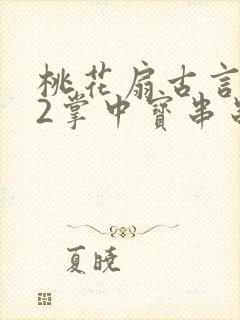 桃花扇古言
2掌中寳串
夏曉